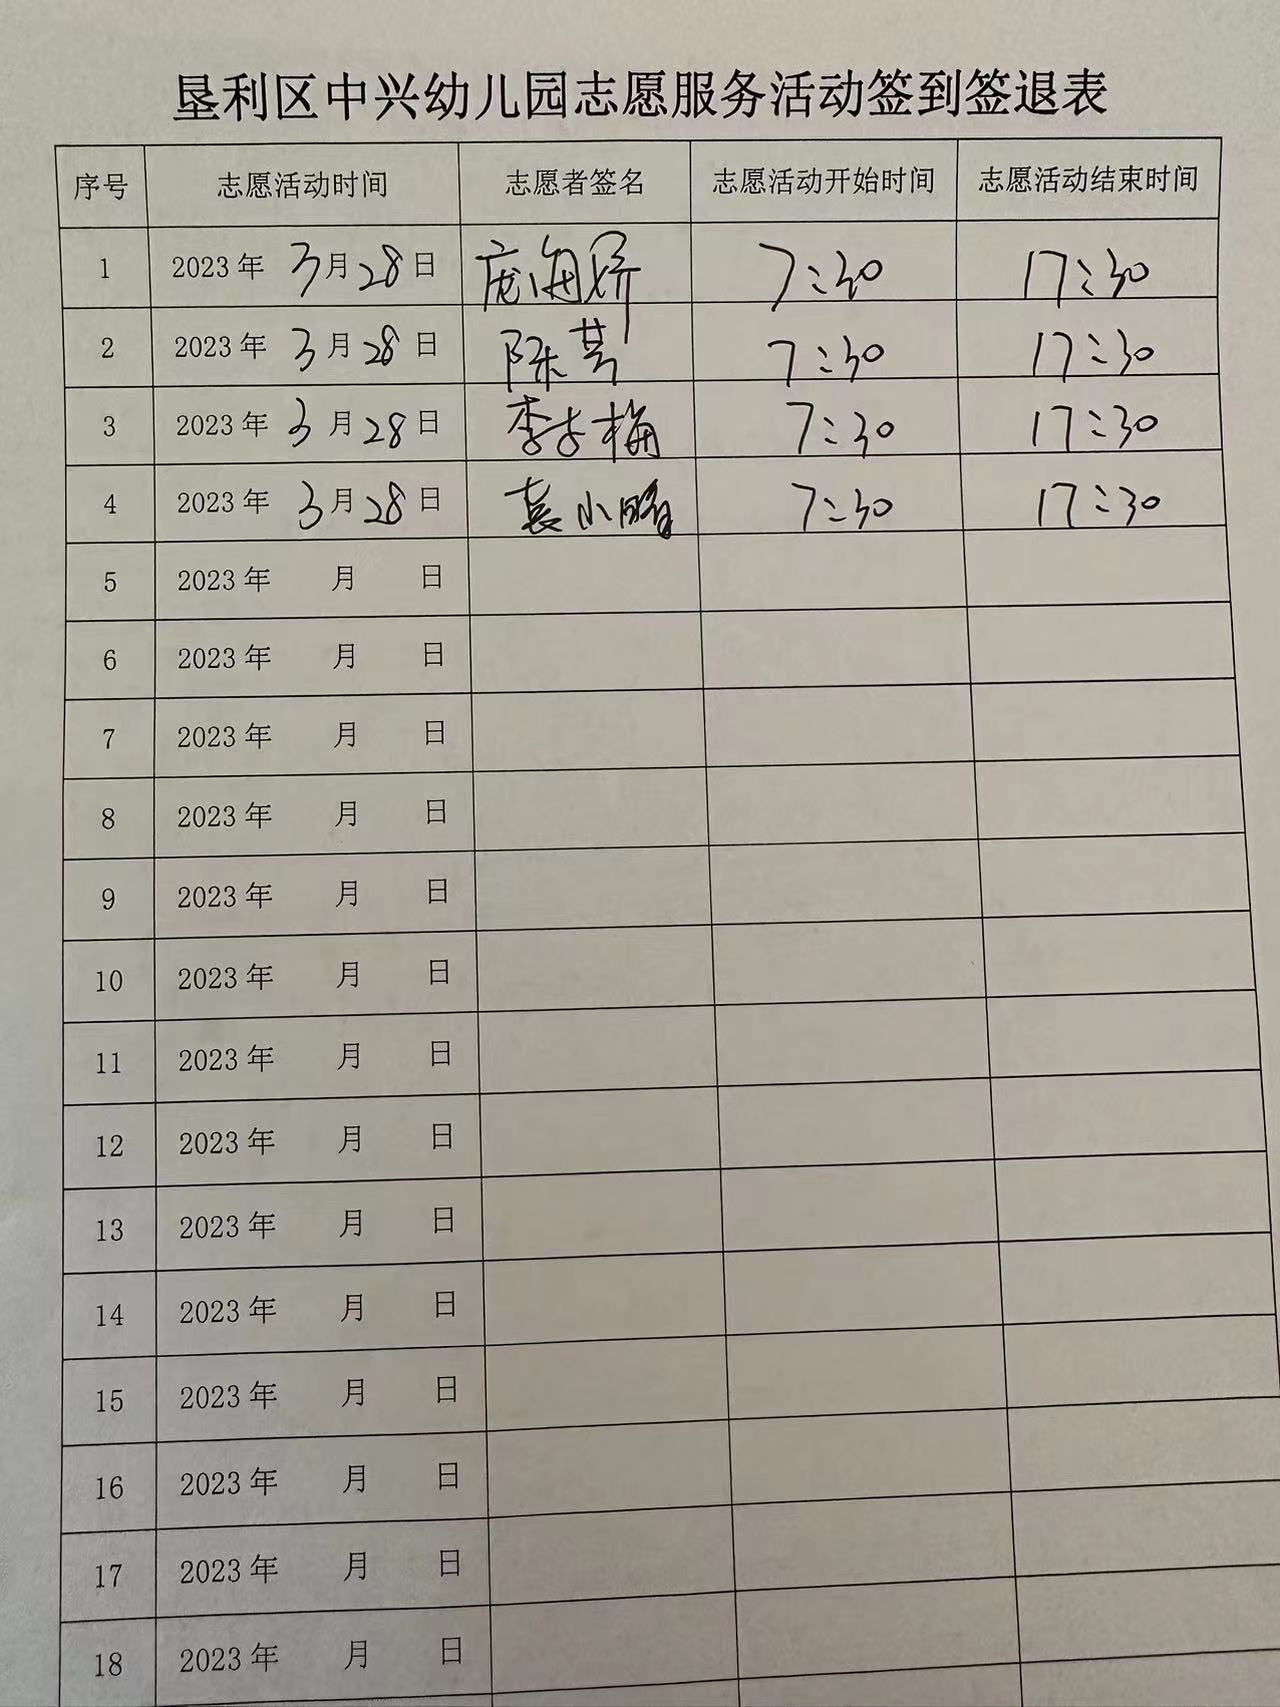 垦利区中兴幼儿园志愿服务活动签到签退表
序号 志愿活动时间 志愿者签名 志愿活动开始时间 志愿活动结束时间
1 2023年 3月28日 庞海娇 7:30 17:30
2 2023年 3月28日 陈 7:30 17:30
3 2023年 3月28日 李梅 7:30 17:30
4 2023年 3月28日 袁小 7:30 17:30
5 2023年 月 日
6 2023年 月 日
7 2023年 月 日
8 2023年 月 日
9 2023年 月 日
10 2023年 月 日
11 2023年 月 日
12 2023年 月 日
13 2023年 月 日
14 2023年 月 日
15 2023年 月 日
16 2023年 月 日
17 2023年 月 日
18 2023年 月 日